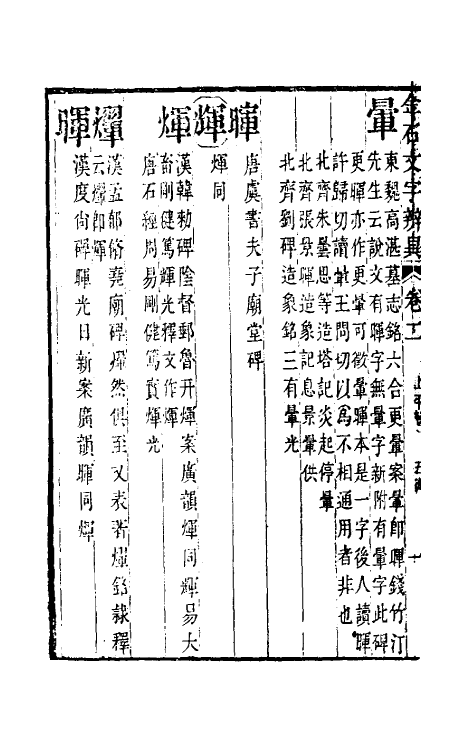 金石文字辨異 卷二 上平聲 五微
暈
東魏高湛墓志銘六合更暈案暈即暉錢竹汀
先生云說文有暉字無暈字新附有暈字此碑
更暉亦作更暈可徵暈暉本是一字後人讀暉
許歸切讀暈王問切以為不相通用者非也
北齊朱曇思等造塔記炎起停暈
北齊張景暉造象記息景暈供
北齊劉碑造象銘三有暈光
暉
唐虞書夫子廟堂碑
輝
煇同
煇
漢韓勑碑陰督郵魯開煇案廣韻煇同輝易大
畜剛健篤輝光釋文作煇
唐石經周易剛健篤實煇光
漢孟郁脩堯廟碑燿然俱至又表著燿銘隷釋
云燿即輝
暉
漢度尚碑暉光日新案廣韻暉同煇